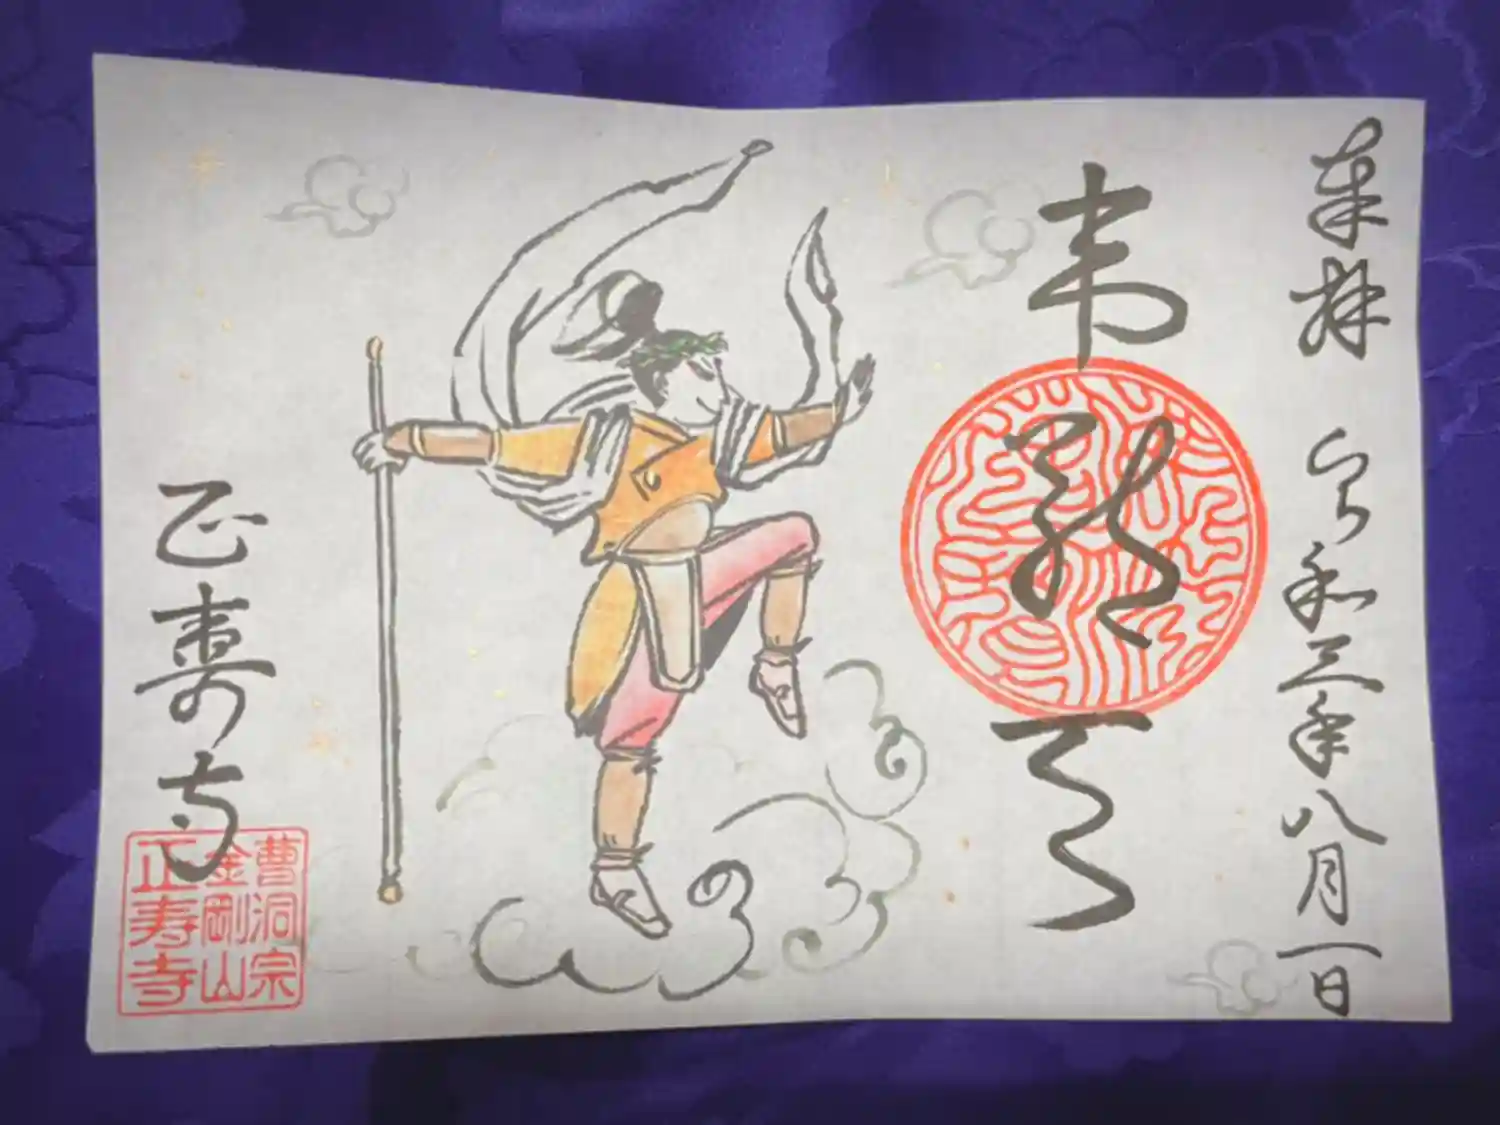 奉拝 令和三年八月一日
韋駄天
正寿寺
曹洞宗
金剛山
正寿寺